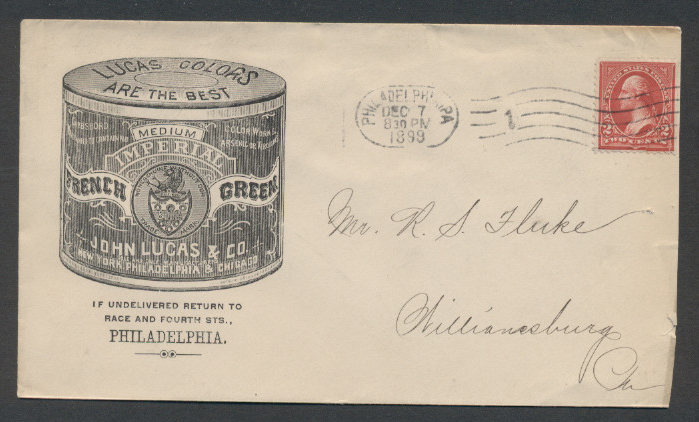 LUCAS COLORS
ARE THE BEST
MEDIUM
IMPERIAL
FRENCH GREENS
JOHN LUCAS & CO.
NEW YORK PHILADELPHIA & CHICAGO
IF UNDELIVERED RETURN TO
RACE AND FOURTH STS.,
PHILADELPHIA.
PHILADELPHIA, PA
DEC 7
8 30 PM
1899
1
2 2
TWO CENTS
Mr. R. S. Fluke
Williamsburg
Pa